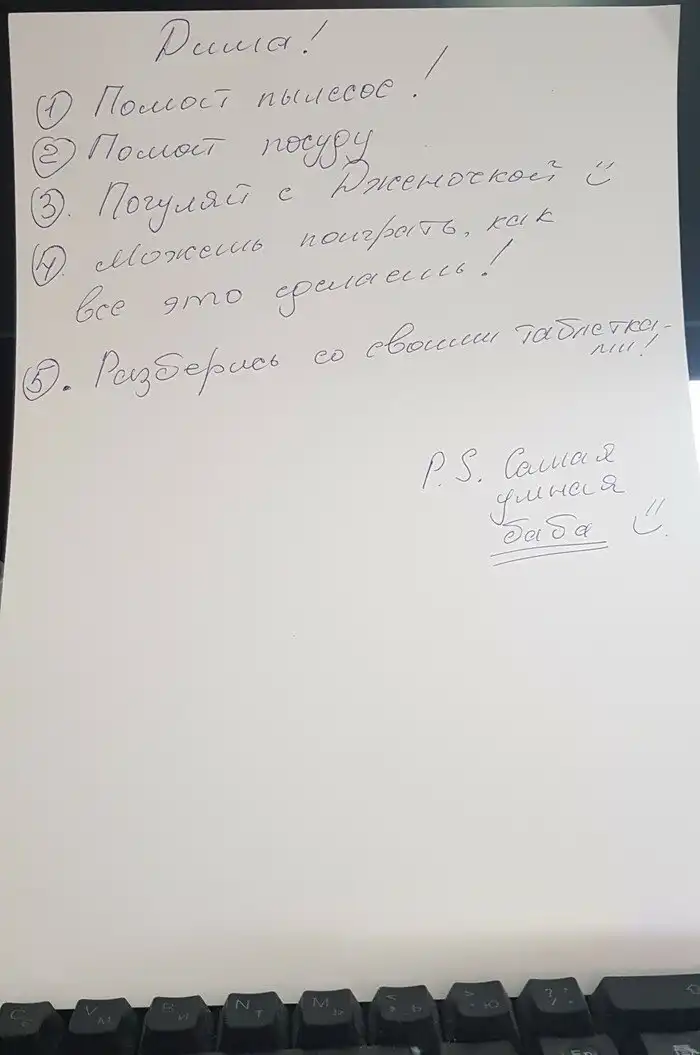 Дима!
① Помой пылесос!
② Помой посуду
③. Погуляй с Дженочкой
④. Можешь поиграть, как
все это сделаешь!
⑤. Разберись со своими таблетка-
ми!
P.S. Самая
умная
баба
C С
V М
B И
N Т
M Ь
< Б
> Ю
? .